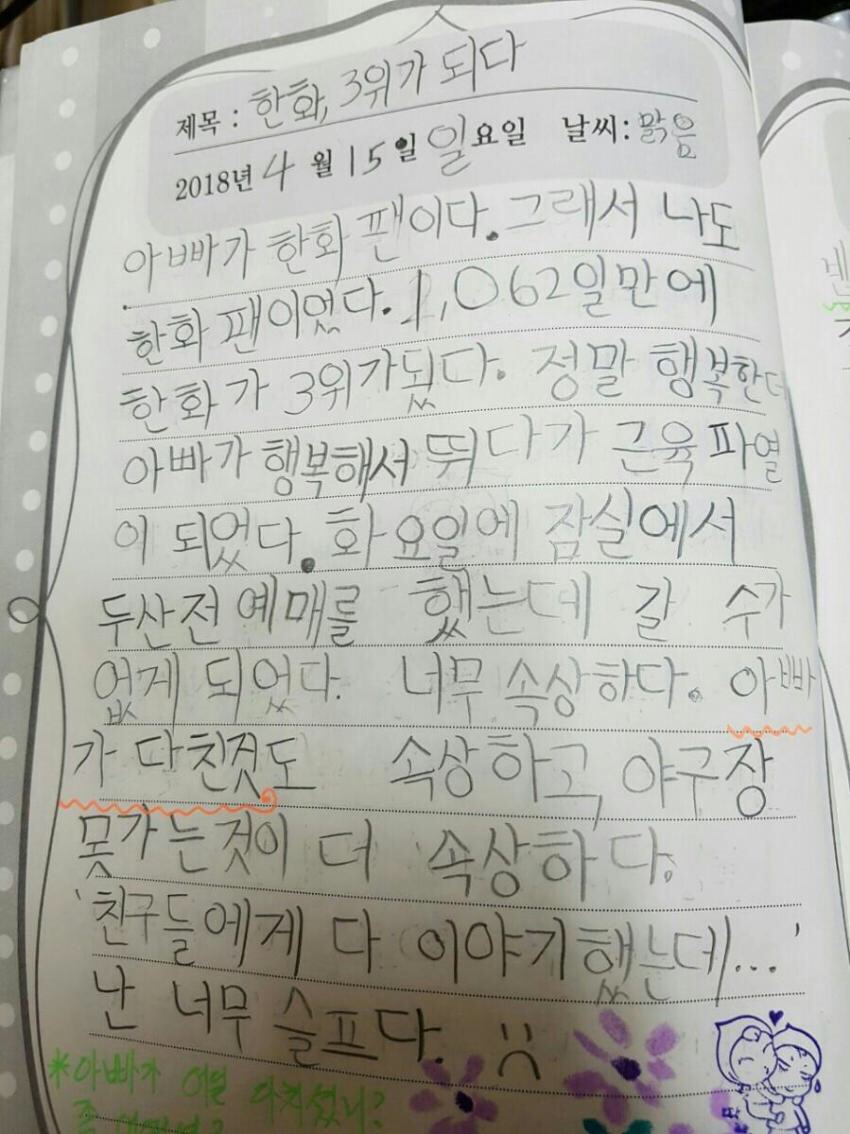 제목 : 한화, 3위가 되다
2018년 4월 15일 일요일 날씨: 맑음
아빠가 한화 팬이다. 그래서 나도
한화 팬이었다. 1,062일만에
한화가 3위가됬다. 정말 행복한다
아빠가 행복해서 뛰다가 근육파열
이 되었다. 화요일에 잠실에서
두산전 예매를 했는데 갈 수가
없게 되었다. 너무 속상하다. 아빠
가 다친것도 속상하고, 야구장
못가는것이 더 속상하다.
'친구들에게 다 이야기했는데...'
난 너무 슬프다.
*아빠가 다치셨니?